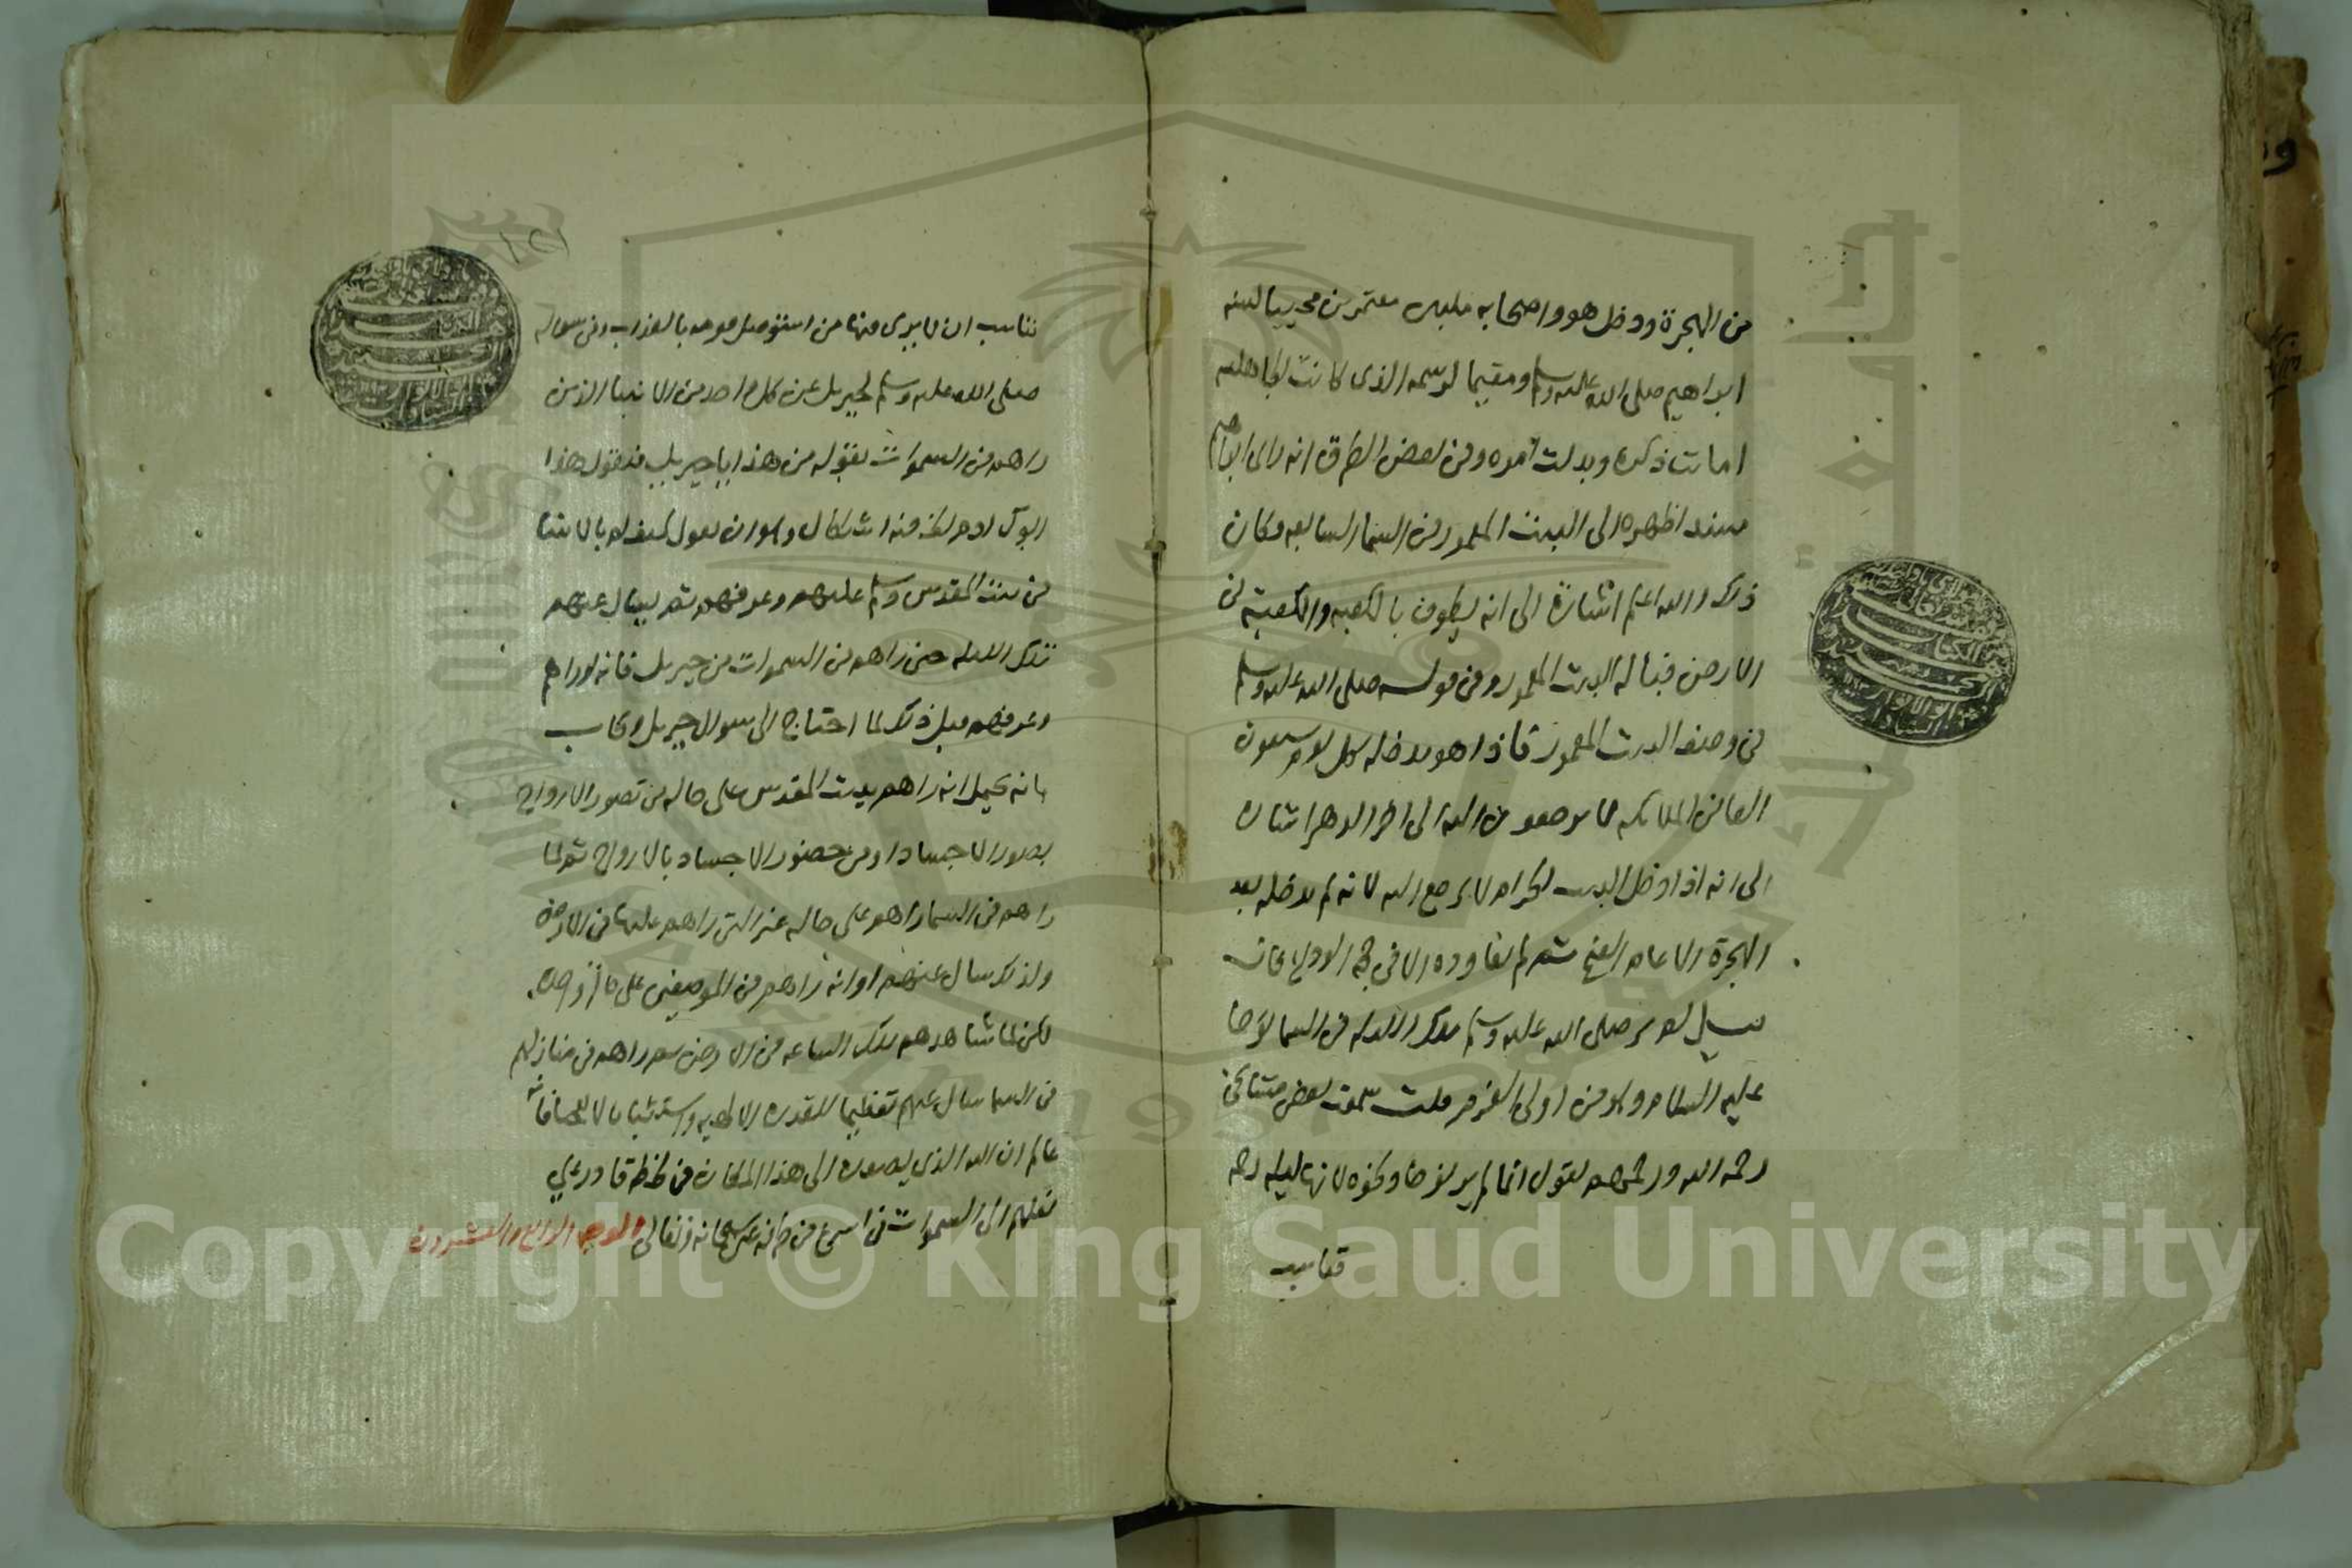 من الهجرة ودخل هو واصحابه ملبين معتمرين محييا لسنه
ابراهيم صلى الله عليه وسلم ومقيما لرسمه الذى كانت الجاهليه
اماتت ذكره وبدلت امره وفى بعض الطرق انه راى ابراهيم
مسندا ظهره الى البيت المعمور فى السما السابعه وكان
ذلك والله اعلم اشارة الى انه يطوف بالكعبه والكعبة فى
الارض قبالة البيت المعمور وفى قوله صلى الله عليه وسلم
فى وصف البيت المعمور فاذا هو يدخله كل يوم سبعون
الفا من الملائكه لا يرجعون اليه الى اخر الدهر اشاره
الى انه اذا دخل البيت الحرام لا يرجع اليه لانه لم يدخله بعد
الهجرة الا عام الفتح ثم لم يعاوده الا فى حجة الوداع فان
قيل لم لم ير صلى الله عليه وسلم تلك الليله فى السما نوحا
عليه السلام وهو من اولى العزم قلت سمعت بعض مشائخى
رحمه الله ورحمهم يقول انما لم ير نوحا ونحوه لانها ليله رحمه
فناسب
فناسب ان لا يرى فيها من استؤصل قومه بالعذاب وفى سواله
صلى الله عليه وسلم لجبريل عن كل واحد من الانبيا الذين
راهم فى السموات بقوله من هذا يا جبريل فيقول هذا
ابوك ادم لكنه فيه اشكال وهو ان يقول كيف ام بالانبيا
فى بيت المقدس وسلم عليهم وعرفهم ثم يسال عنهم
تلك الليله حين راهم فى السموات من جبريل فانه لو راهم
وعرفهم قبل ذلك لما احتاج الى سوال جبريل واجاب
بانه يحتمل انه راهم ببيت المقدس على حاله من تصور الارواح
بصور الاجساد او من حضور الاجساد بالارواح ثم لما
راهم فى السما راهم على حاله غير التى راهم عليها فى الارض
ولذلك سال عنهم او انه راهم فى الموضعين على
لكن لما شاهدهم تلك الساعه فى الارض ثم راهم فى منازلهم
فى السما سال عنهم تعظيما للقدرة الالهيه واستثباتا لا
عالم ان الله الذي اصعده الى هذا المكان فى لحظة قادر على
نقلهم الى السموات فى اسرع من طرفة عين سبحانه وتعالى الوجه الرابع والعشرون